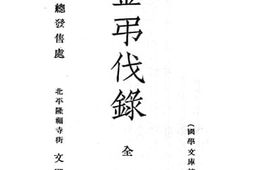 (國學文庫
弔伐錄
全
總發售處
北平隆福寺街 文